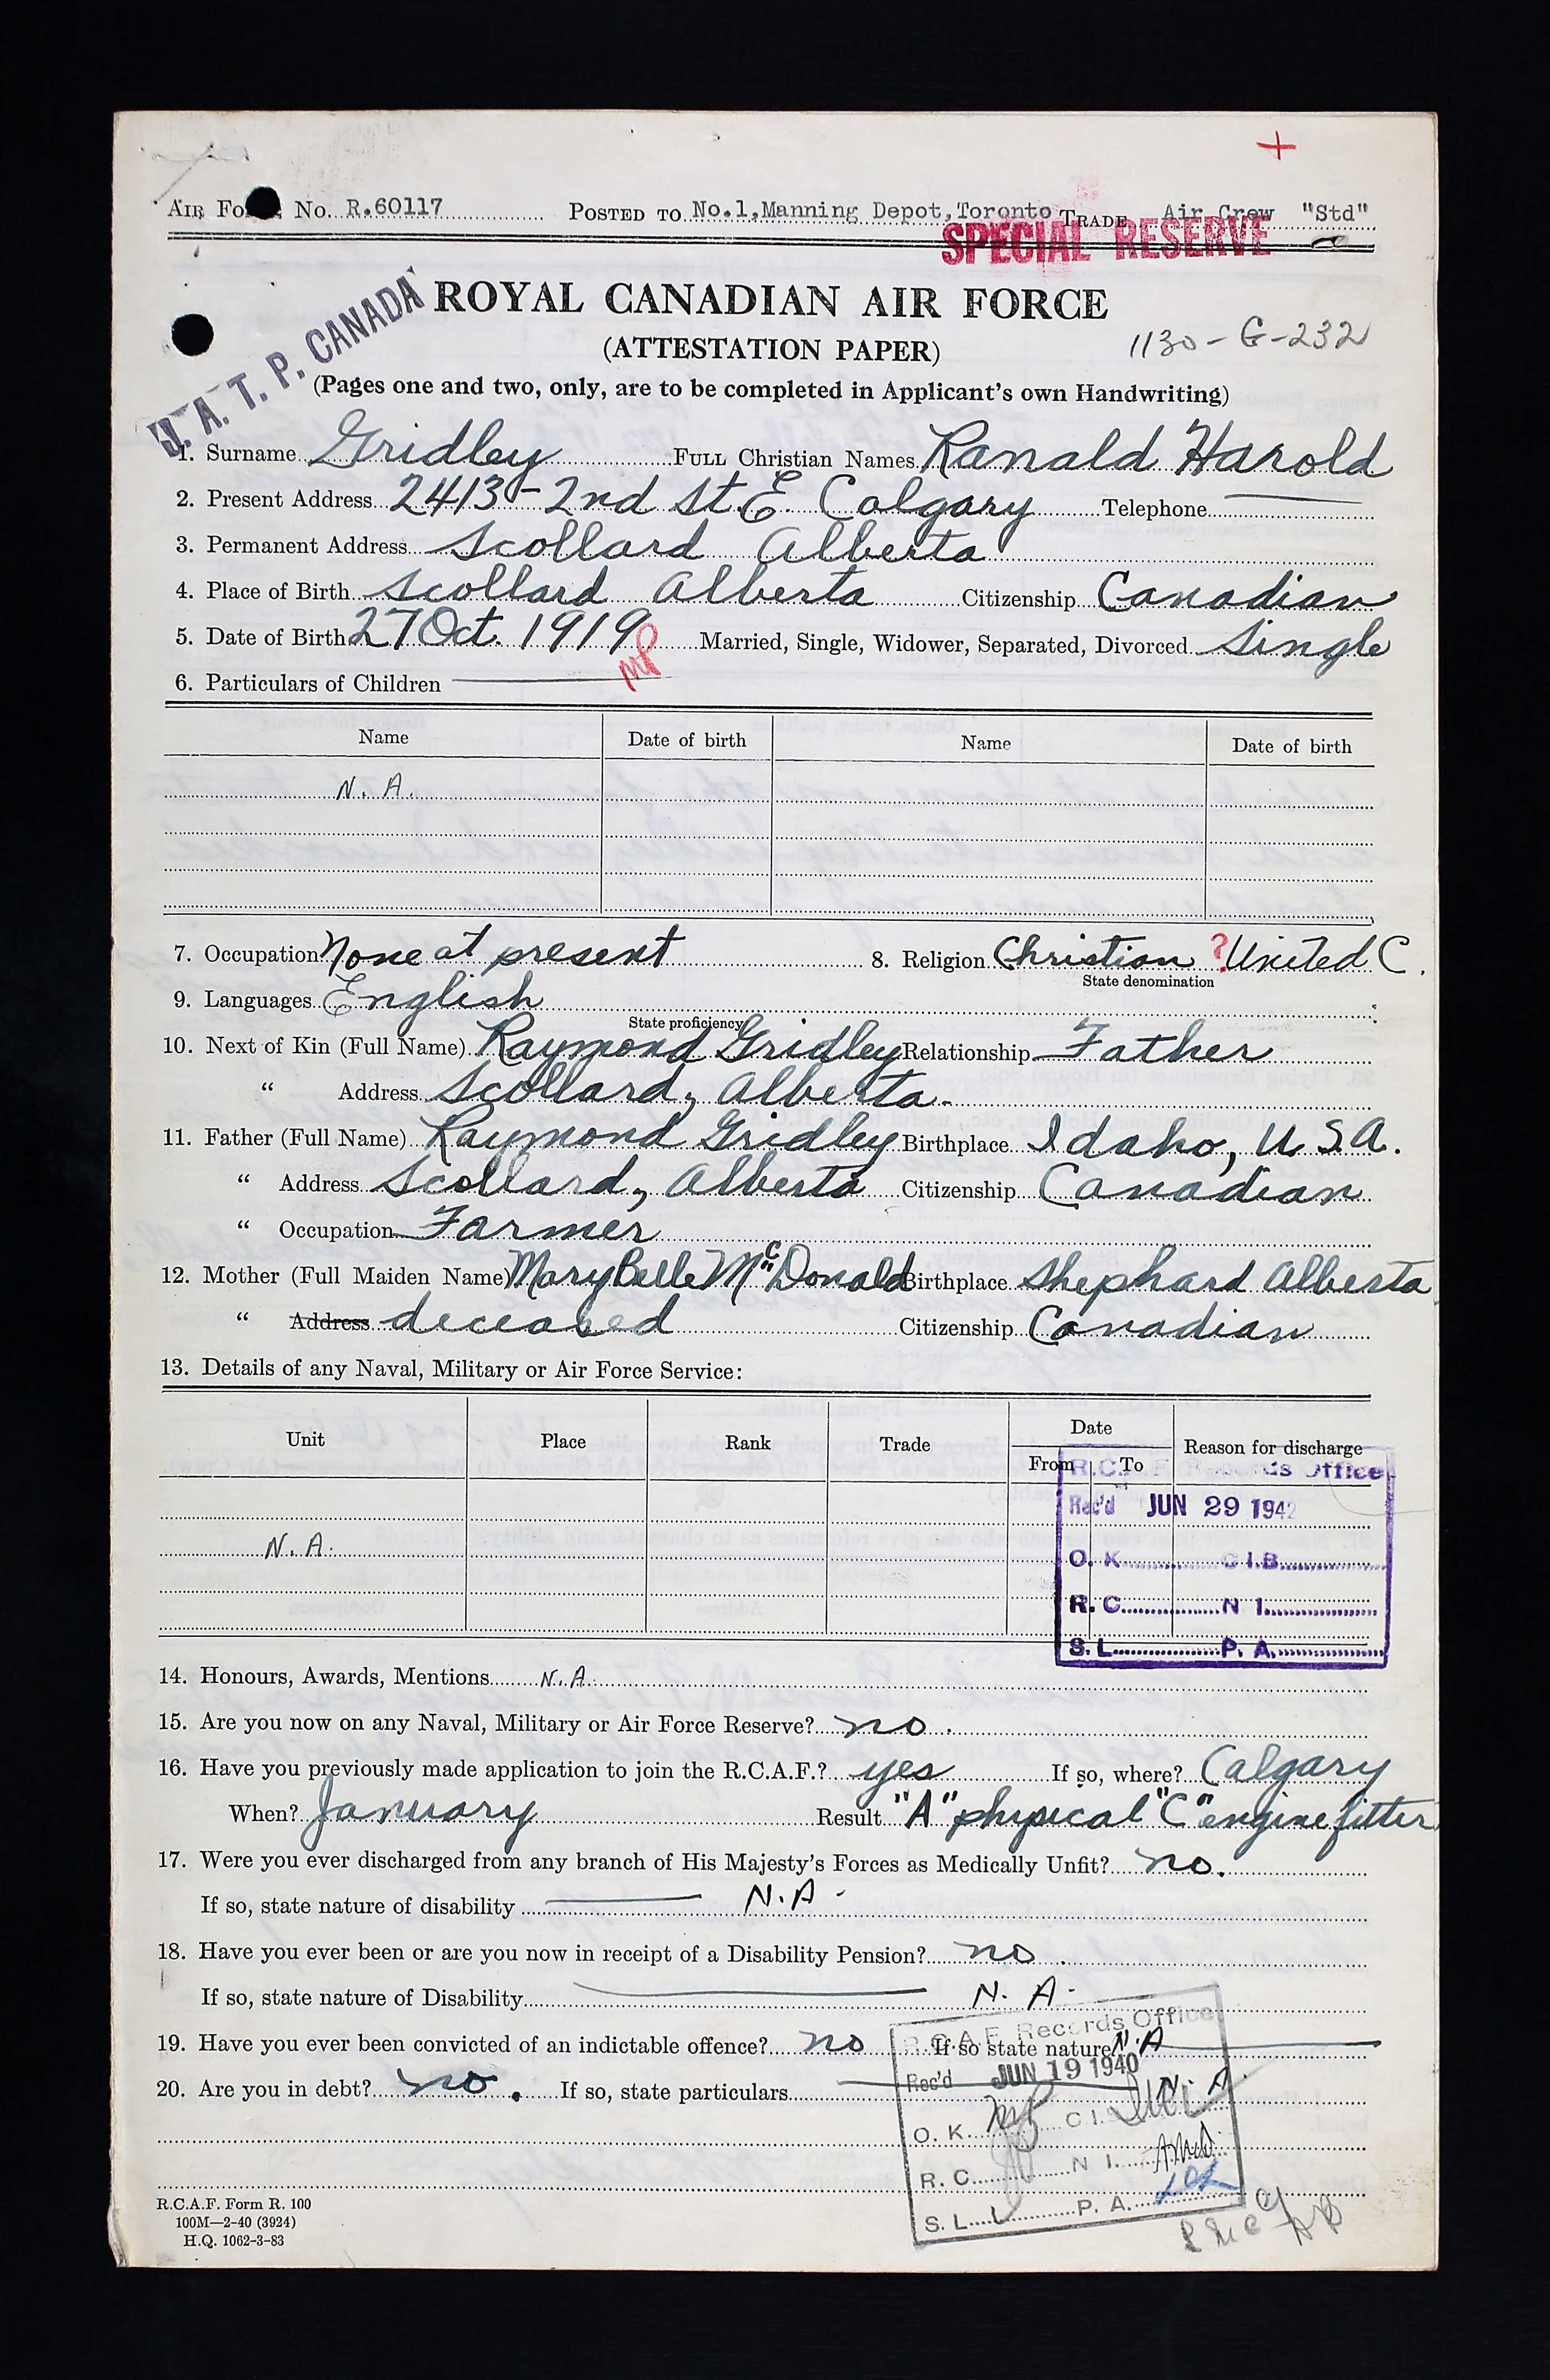 +
AIR FO No. R.60117 POSTED TO No.1,Manning Depot,Toronto TRADE Air Crew "Std"
SPECIAL RESERVE
J. A. T. P. CANADA
ROYAL CANADIAN AIR FORCE
(ATTESTATION PAPER)
1130-G-232
(Pages one and two, only, are to be completed in Applicant's own Handwriting)
1. Surname Gridley FULL Christian Names Ranald Harold
2. Present Address 2413-2nd St. E. Calgary Telephone
3. Permanent Address Scollard Alberta
4. Place of Birth Scollard Alberta Citizenship Canadian
5. Date of Birth 27 Oct. 1919 Married, Single, Widower, Separated, Divorced Single
6. Particulars of Children
Name Date of birth Name Date of birth
N. A.
7. Occupation None at present 8. Religion Christian ? United C.
State denomination
9. Languages English
State proficiency
10. Next of Kin (Full Name) Raymond Gridley Relationship Father
" Address Scollard, Alberta.
11. Father (Full Name) Raymond Gridley Birthplace Idaho, U.S.A.
" Address Scollard, Alberta Citizenship Canadian
" Occupation Farmer
12. Mother (Full Maiden Name) Mary Belle McDonald Birthplace Shephard Alberta
" Address deceased Citizenship Canadian
13. Details of any Naval, Military or Air Force Service:
Unit Place Rank Trade Date Reason for discharge
From To
R.C. Records Office
Rec'd JUN 29 1942
N. A.
O. K. C I.B.
R. C. N I.
S. L. P. A.
14. Honours, Awards, Mentions N.A.
15. Are you now on any Naval, Military or Air Force Reserve? no.
16. Have you previously made application to join the R.C.A.F.? yes If so, where? Calgary
When? January Result "A" physical "C" engine fitter
17. Were you ever discharged from any branch of His Majesty's Forces as Medically Unfit? no.
If so, state nature of disability N.A-
18. Have you ever been or are you now in receipt of a Disability Pension? no.
If so, state nature of Disability N. A-
19. Have you ever been convicted of an indictable offence? no If so state nature N.A
20. Are you in debt? no. If so, state particulars N. A.
R.C.A.F. Records Office
Rec'd JUN 19 1940
O. K. C I.
R. C. N I.
S. L. P. A.
R.C.A.F. Form R. 100
100M—2-40 (3924)
H.Q. 1062-3-83